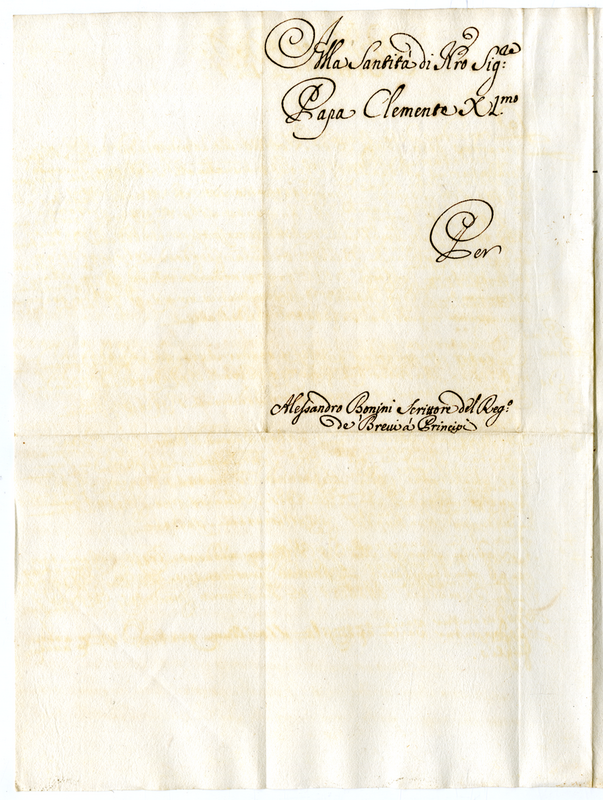 Alla Santità di Nro Sig:re
Papa Clemente XI.mo
Per
Alessandro Bonini Scrittore del Reg.o
de Brevi à Principi